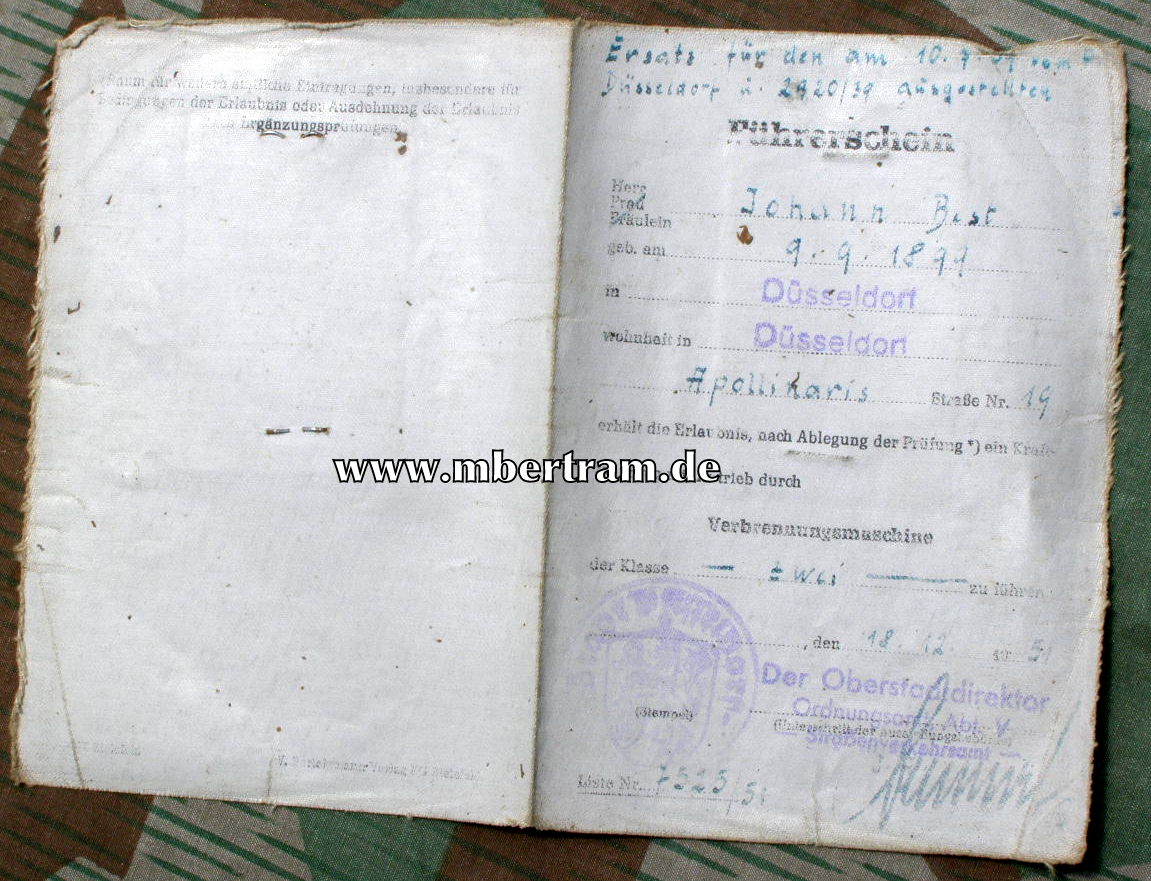 Raum für weitere amtliche Eintragungen, insbesondere für
Bedingungen der Erlaubnis oder Ausdehnung der Erlaubnis
nach Ergänzungsprüfungen
Ersatz für den am 10.7.39 vom
Düsseldorf u. 2920/39 ausgestellten
Führerschein
Herr
Frau
Fräulein
Johann Best
geb. am 9.9.1899
in Düsseldorf
wohnhaft in Düsseldorf
Apollinaris Straße Nr. 19
erhält die Erlaubnis, nach Ablegung der Prüfung *) ein Kraft-
trieb durch
www.mbertram.de
Verbrennungsmaschine
der Klasse — zwei — zu führen
, den 18.12. 19 51
Der Oberstadtdirektor
Ordnungsamt Abt. V
— Straßenverkehrsamt —
(Stempel)
(Unterschrift der
Liste Nr. 7525/51